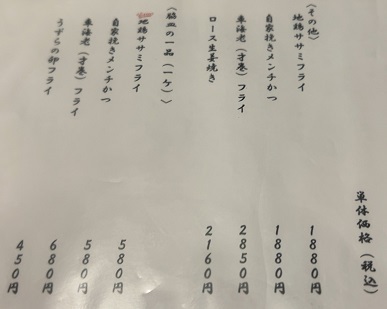 単体価格（税込）
〈その他〉
地鶏ササミフライ 1880円
自家挽きメンチかつ 1880円
車海老（才巻）フライ 2850円
ロース生姜焼き 2160円
〈脇皿の一品（一ケ）〉
地鶏ササミフライ 580円
自家挽きメンチかつ 580円
車海老（才巻）フライ 680円
うずらの卵フライ 450円